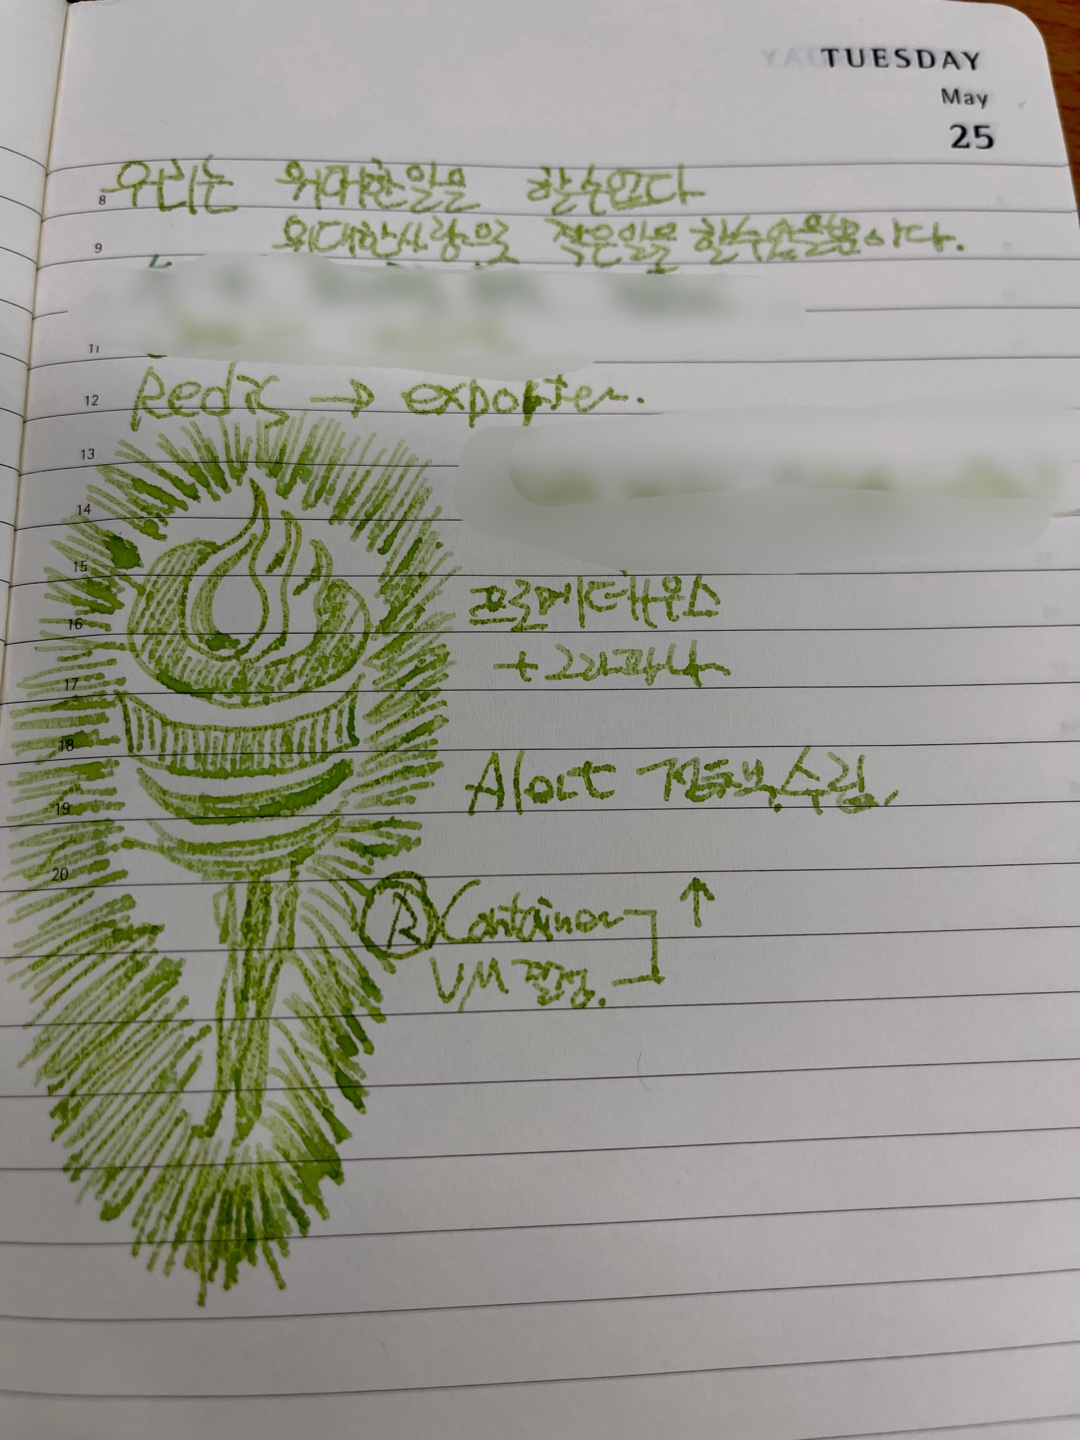 TUESDAY
May
25
8 우리는 위대한일을 할수없다
9 위대한사랑으로 작은일을 할수있을뿐이다.
11
12 Redis → exporter.
13
14
15
프로메테우스
16
+그라파나
17
18
Alert 정책수립,
19
20
R Container ↑
VM